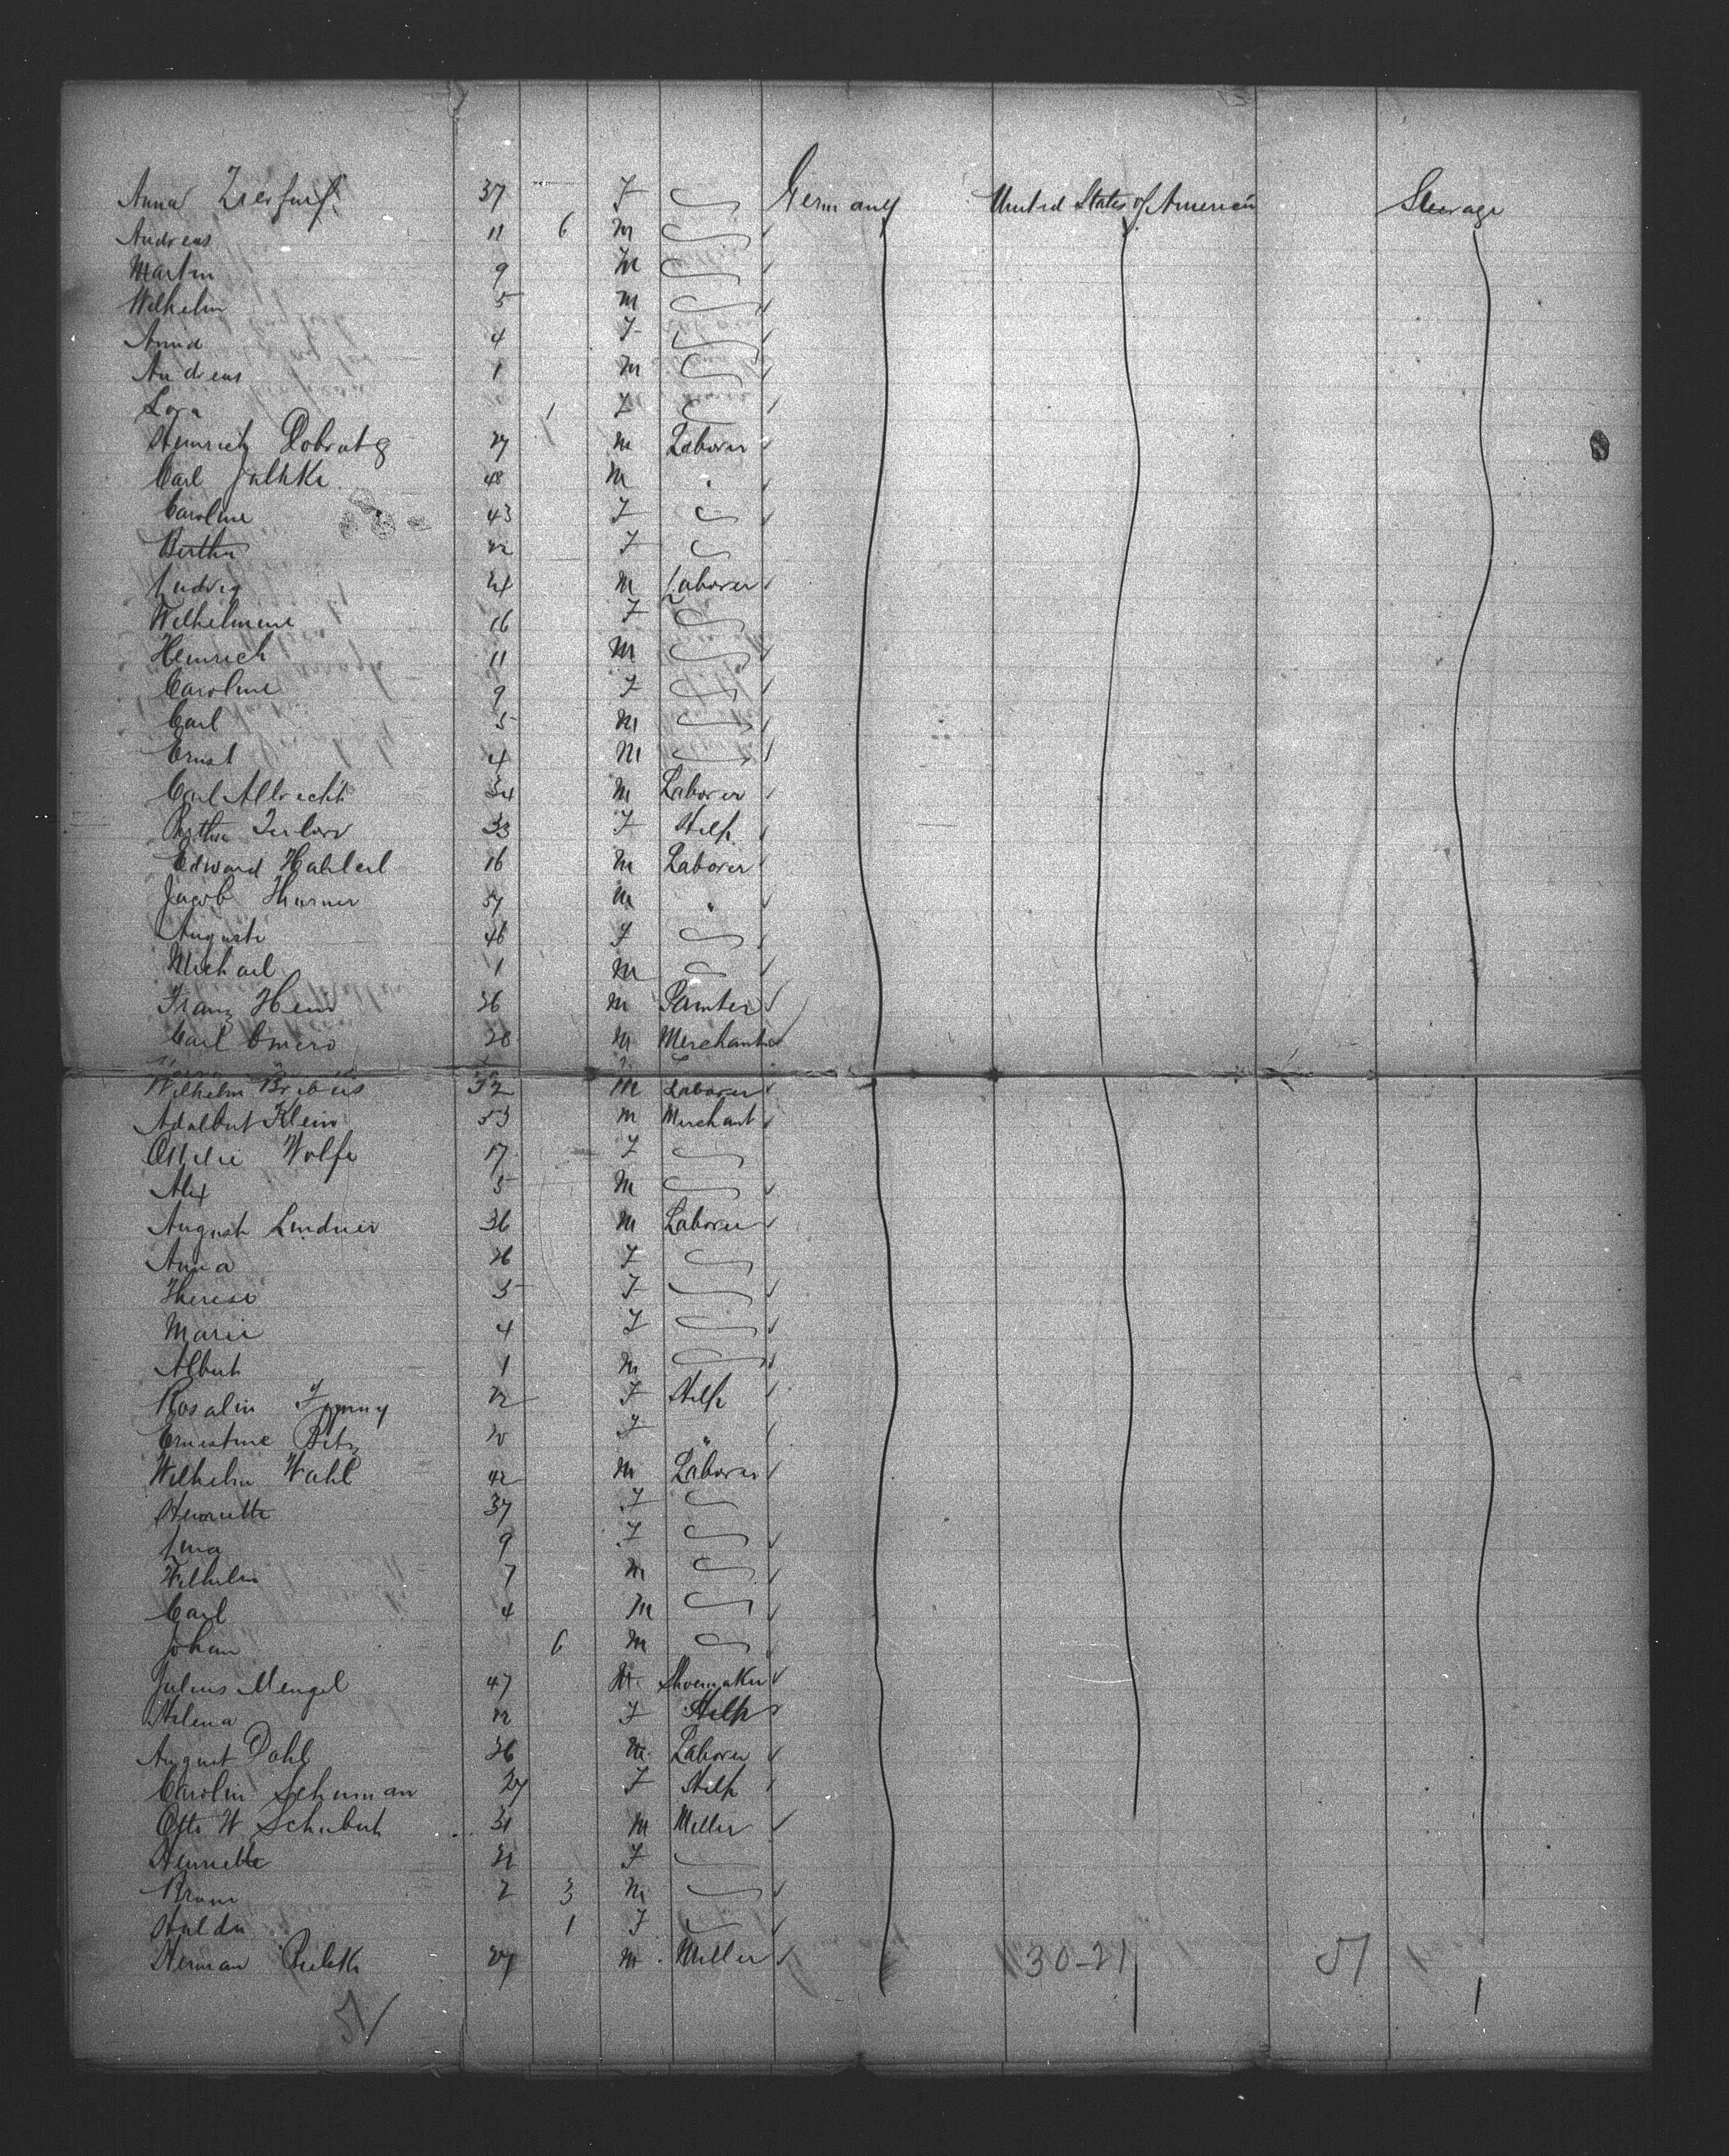 Anna 37 F Germany United States of America Steerage
Andreas 11 6 M
Martin 9 M
Wilhelm 5 M
Anna 4 F
Andreas 1 M
Lora 1 F
Heinrich Dobratz 27 M Laborer
Carl 48 M "
Caroline 43 F
Bertha 22 F
Ludwig 24 M Laborer
Wilhelmine 16 F
Heinrich 11 M
Caroline 9 F
Carl 5 M
Ernst 4 M
Carl Albrecht 34 M Laborer
33 F Help
Edward 16 M Laborer
Jacob M "
Auguste 46 F
Michael 1 M
Franz 36 M Painter
Carl 28 M Merchant
Wilhelm 32 M Laborer
Adalbert Klein 53 M Merchant
Ottilie Wolfe 17 F
Alex 5 M
August Lindner 36 M Laborer
Anna F
Therese 5 F
Marie 4 F
Albert 1 M
Rosalie 22 F Help
Ernestine Betz 20 F "
Wilhelm Wahl 42 M Laborer
Henriette 37 F
Lina 9 F
Wilhelm 7 M
Carl 4 M
Johan 6 M
Julius Mengel 47 M Shoemaker
Helena 22 F Help
August Dahl 36 M Laborer
Carolin Schuman 27 F Help
Otto W Schubert 31 M Miller
Henriette 31 F
Bruno 2 3 M
Hulda 1 F
Herman 27 M Miller
30-21 51
51